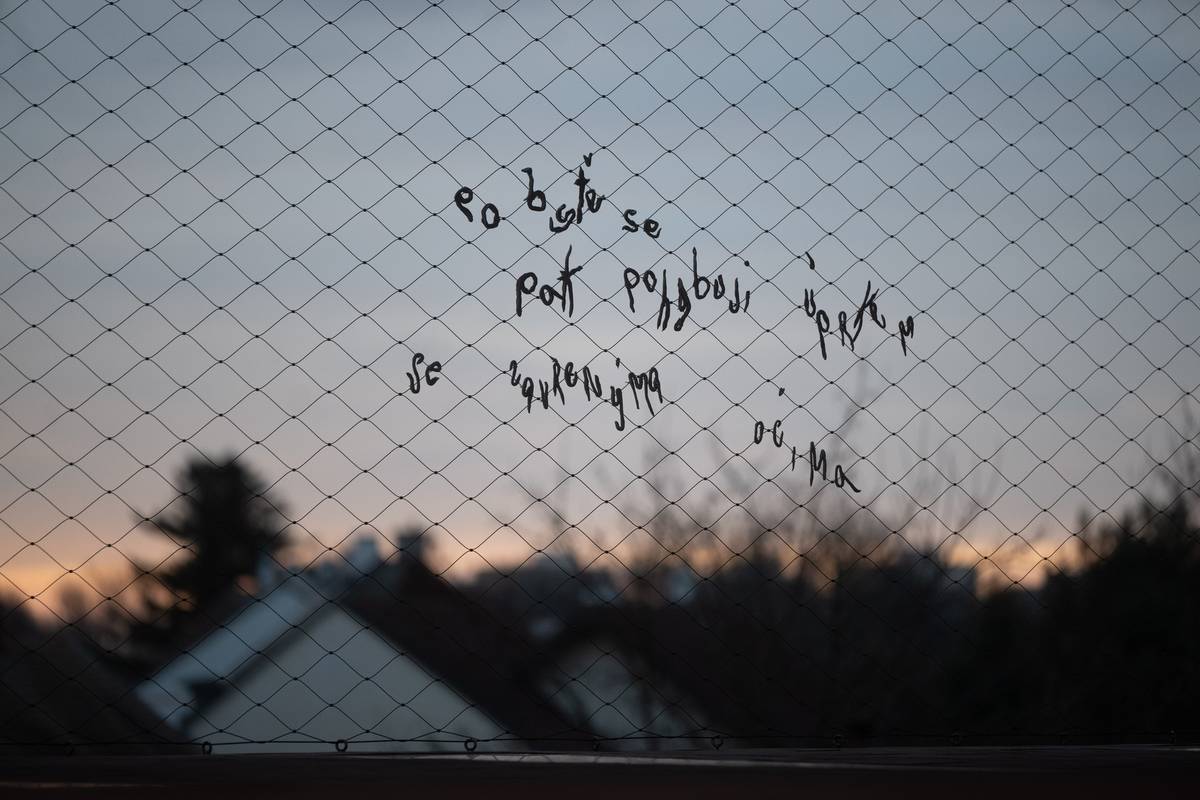 po bytě se
pak pohybuji úprkem
se zavřenýma očima